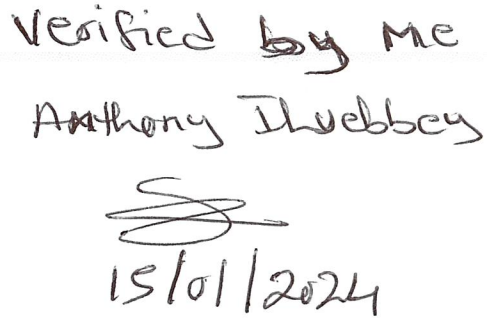 Verified by Me
Anthony Iluebbey
15/01/2024